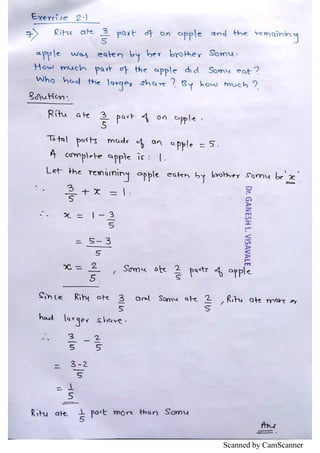 Exercise 2.1
7) Ritu ate 3/5 part of an apple and the remaining
apple was eaten by her brother Somu.
How much part of the apple did Somu eat?
Who had the larger share? By how much?
Solution:
Ritu ate 3/5 part of an apple.
Total parts made of an apple = 5.
A complete apple is : 1.
Let the remaining apple eaten by brother Somu be 'x'
∴ 3/5 + x = 1.
∴ x = 1 - 3/5
= 5-3/5
x = 2/5 , Somu ate 2/5 parts of apple
Since Ritu ate 3/5 and Somu ate 2/5, Ritu ate more or
had larger share.
∴ 3/5 - 2/5
= 3-2/5
= 1/5
Ritu ate 1/5 part more than Somu
Ans
Dr. GANESH L. VISAVALE
Scanned by CamScanner